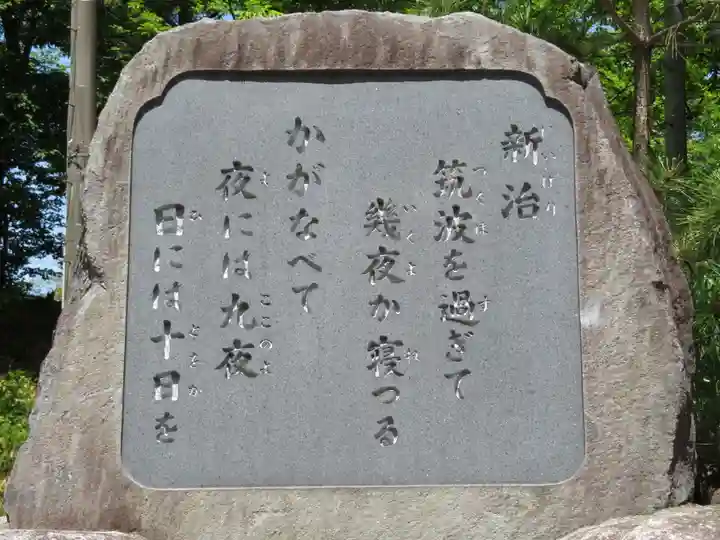 新治
筑波を過ぎて
幾夜か寝つる
かがなべて
夜には九夜
日には十日を
にいはり
つくは
す
いくよ
ね
よ
ここのよ
ひ
とをか